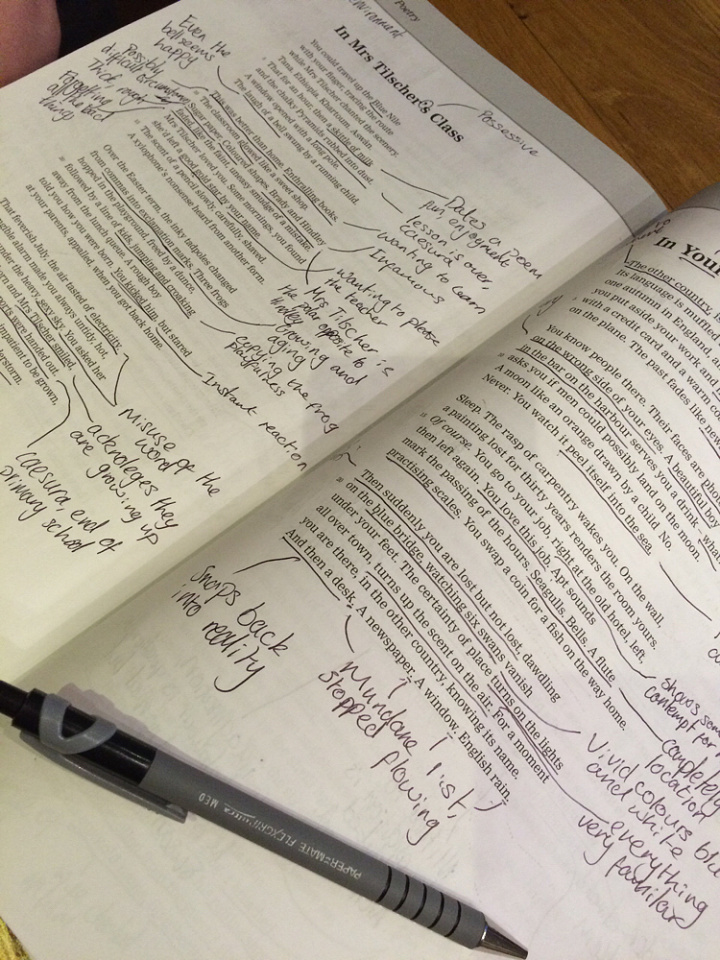 Poetry
In Mrs Tilscher's Class
You could travel up the Blue Nile
with your finger, tracing the route
while Mrs Tilscher chanted the scenery.
Tana. Ethiopia. Khartoum. Aswân.
That for an hour, then a skittle of milk
and the chalky Pyramids rubbed into dust.
A window opened with a long pole.
The laugh of a bell swung by a running child.
This was better than home. Enthralling books.
The classroom glowed like a sweet shop.
Sugar paper. Coloured shapes. Brady and Hindley
faded, like the faint, uneasy smudge of a mistake.
Mrs Tilscher loved you. Some mornings, you found
she'd left a good gold star by your name.
The scent of a pencil slowly, carefully, shaved.
A xylophone's nonsense heard from another form.
Over the Easter term, the inky tadpoles changed
from commas into exclamation marks. Three frogs
hopped in the playground, freed by a dunce,
followed by a line of kids, jumping and croaking
away from the lunch queue. A rough boy
told you how you were born. You kicked him, but stared
at your parents, appalled, when you got back home.
That feverish July, the air tasted of electricity.
alarm made you always untidy, hot,
under the heavy, sexy sky. You asked her
born and Mrs Tilscher smiled,
reports were handed out.
impatient to be grown,
understorm.
Even the
bell seems
happy
Possibly
forgetting
all the bad
things
Possessive
Dates a poem
fun enjoyment
lesson is over,
caesura
wanting to learn
Infamous
wanting to please
the teacher
Mrs Tilscher is
the polar opposite to
Hindley
Growing and
aging
copying the frog
playfulness
Instant reaction
Misuse of the
word
acknoleges they
are growing up
caesura, end of
primary school
In You
The other country,
its language is muffled
one autumn in England,
you put aside your work and
with a credit card and a warm
on the plane. The past fades like
You know people there. Their faces are
on the wrong side of your eyes. A beautiful boy
in the bar on the harbour serves you a drink – what
asks you if men could possibly land on the moon.
A moon like an orange drawn by a child. No.
Never. You watch it peel itself into the sea.
Sleep. The rasp of carpentry wakes you. On the wall,
a painting lost for thirty years renders the room yours.
Of course. You go to your job, right at the old hotel, left,
then left again. You love this job. Apt sounds
mark the passing of the hours. Seagulls. Bells. A flute
practising scales. You swap a coin for a fish on the way home.
Then suddenly you are lost but not lost, dawdling
on the blue bridge, watching six swans vanish
under your feet. The certainty of place turns on the lights
all over town, turns up the scent on the air. For a moment
you are there, in the other country, knowing its name.
And then a desk. A newspaper. A window. English rain.
Snaps back
into reality
Mundane list,
stopped flowing
shows some
contempt for
completely
location
Vivid colours blue
and white
everything
very familiar
PAPER MATE FLEXGRIP ULTRA MED